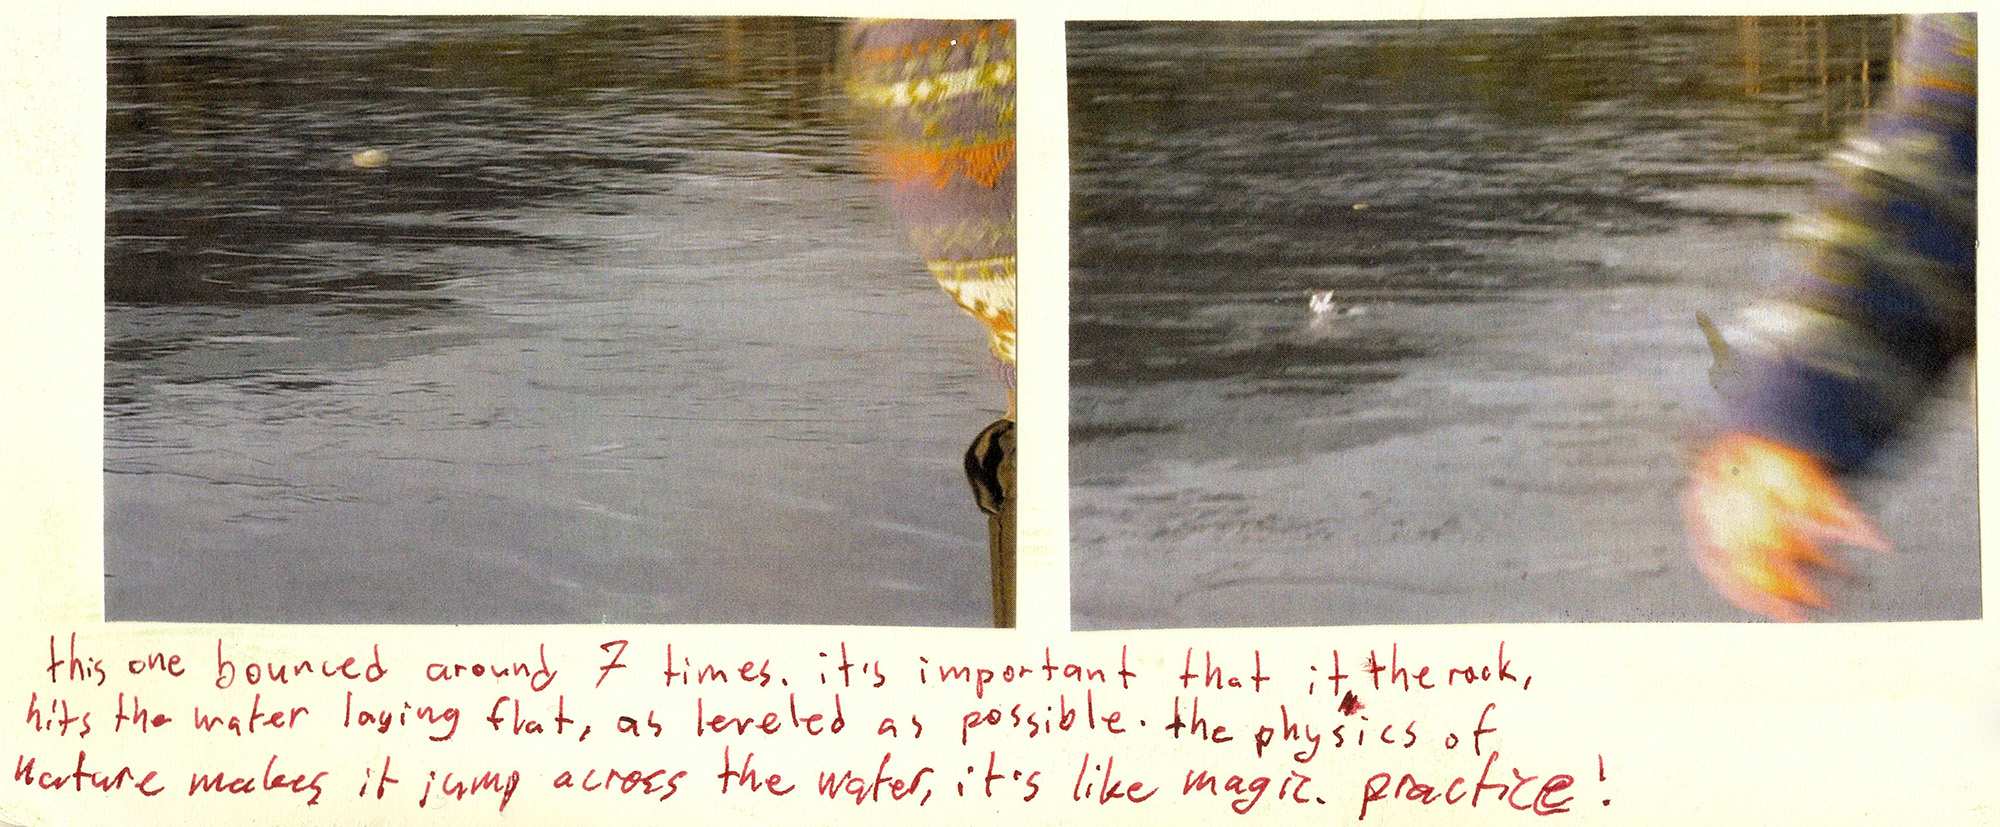 this one bounced around 7 times. it's important that it, the rock,
hits the water laying flat, as leveled as possible. the physics of
nature makes it jump across the water, it's like magic. practice!